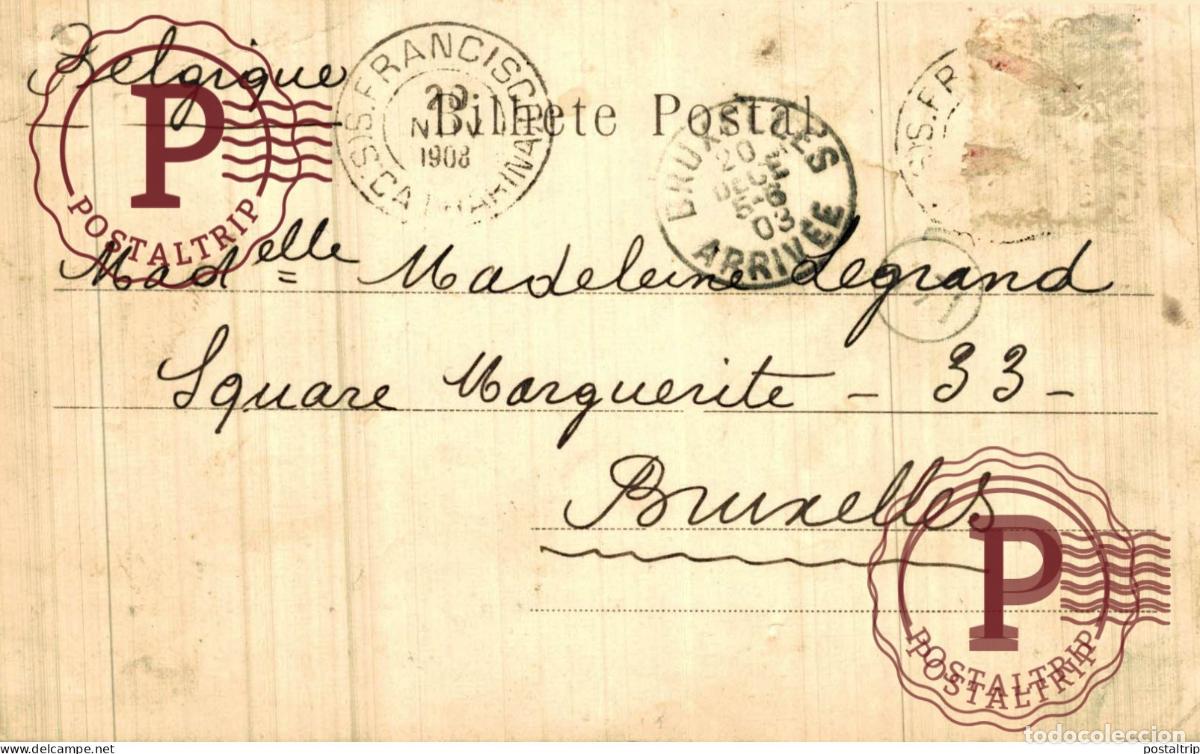 Belgique
S. FRANCISCO
23
NOV
1908
S. CATHARINA
Bilhete Postal
BRUXELLES
20
DEC
03
ARRIVÉE
S. FR
Madelle Madeleine Legrand
Square Marguerite - 33 -
Bruxelles
P
POSTALTRIP
P
POSTALTRIP
todocoleccion
https://www.delcampe.net
postaltrip